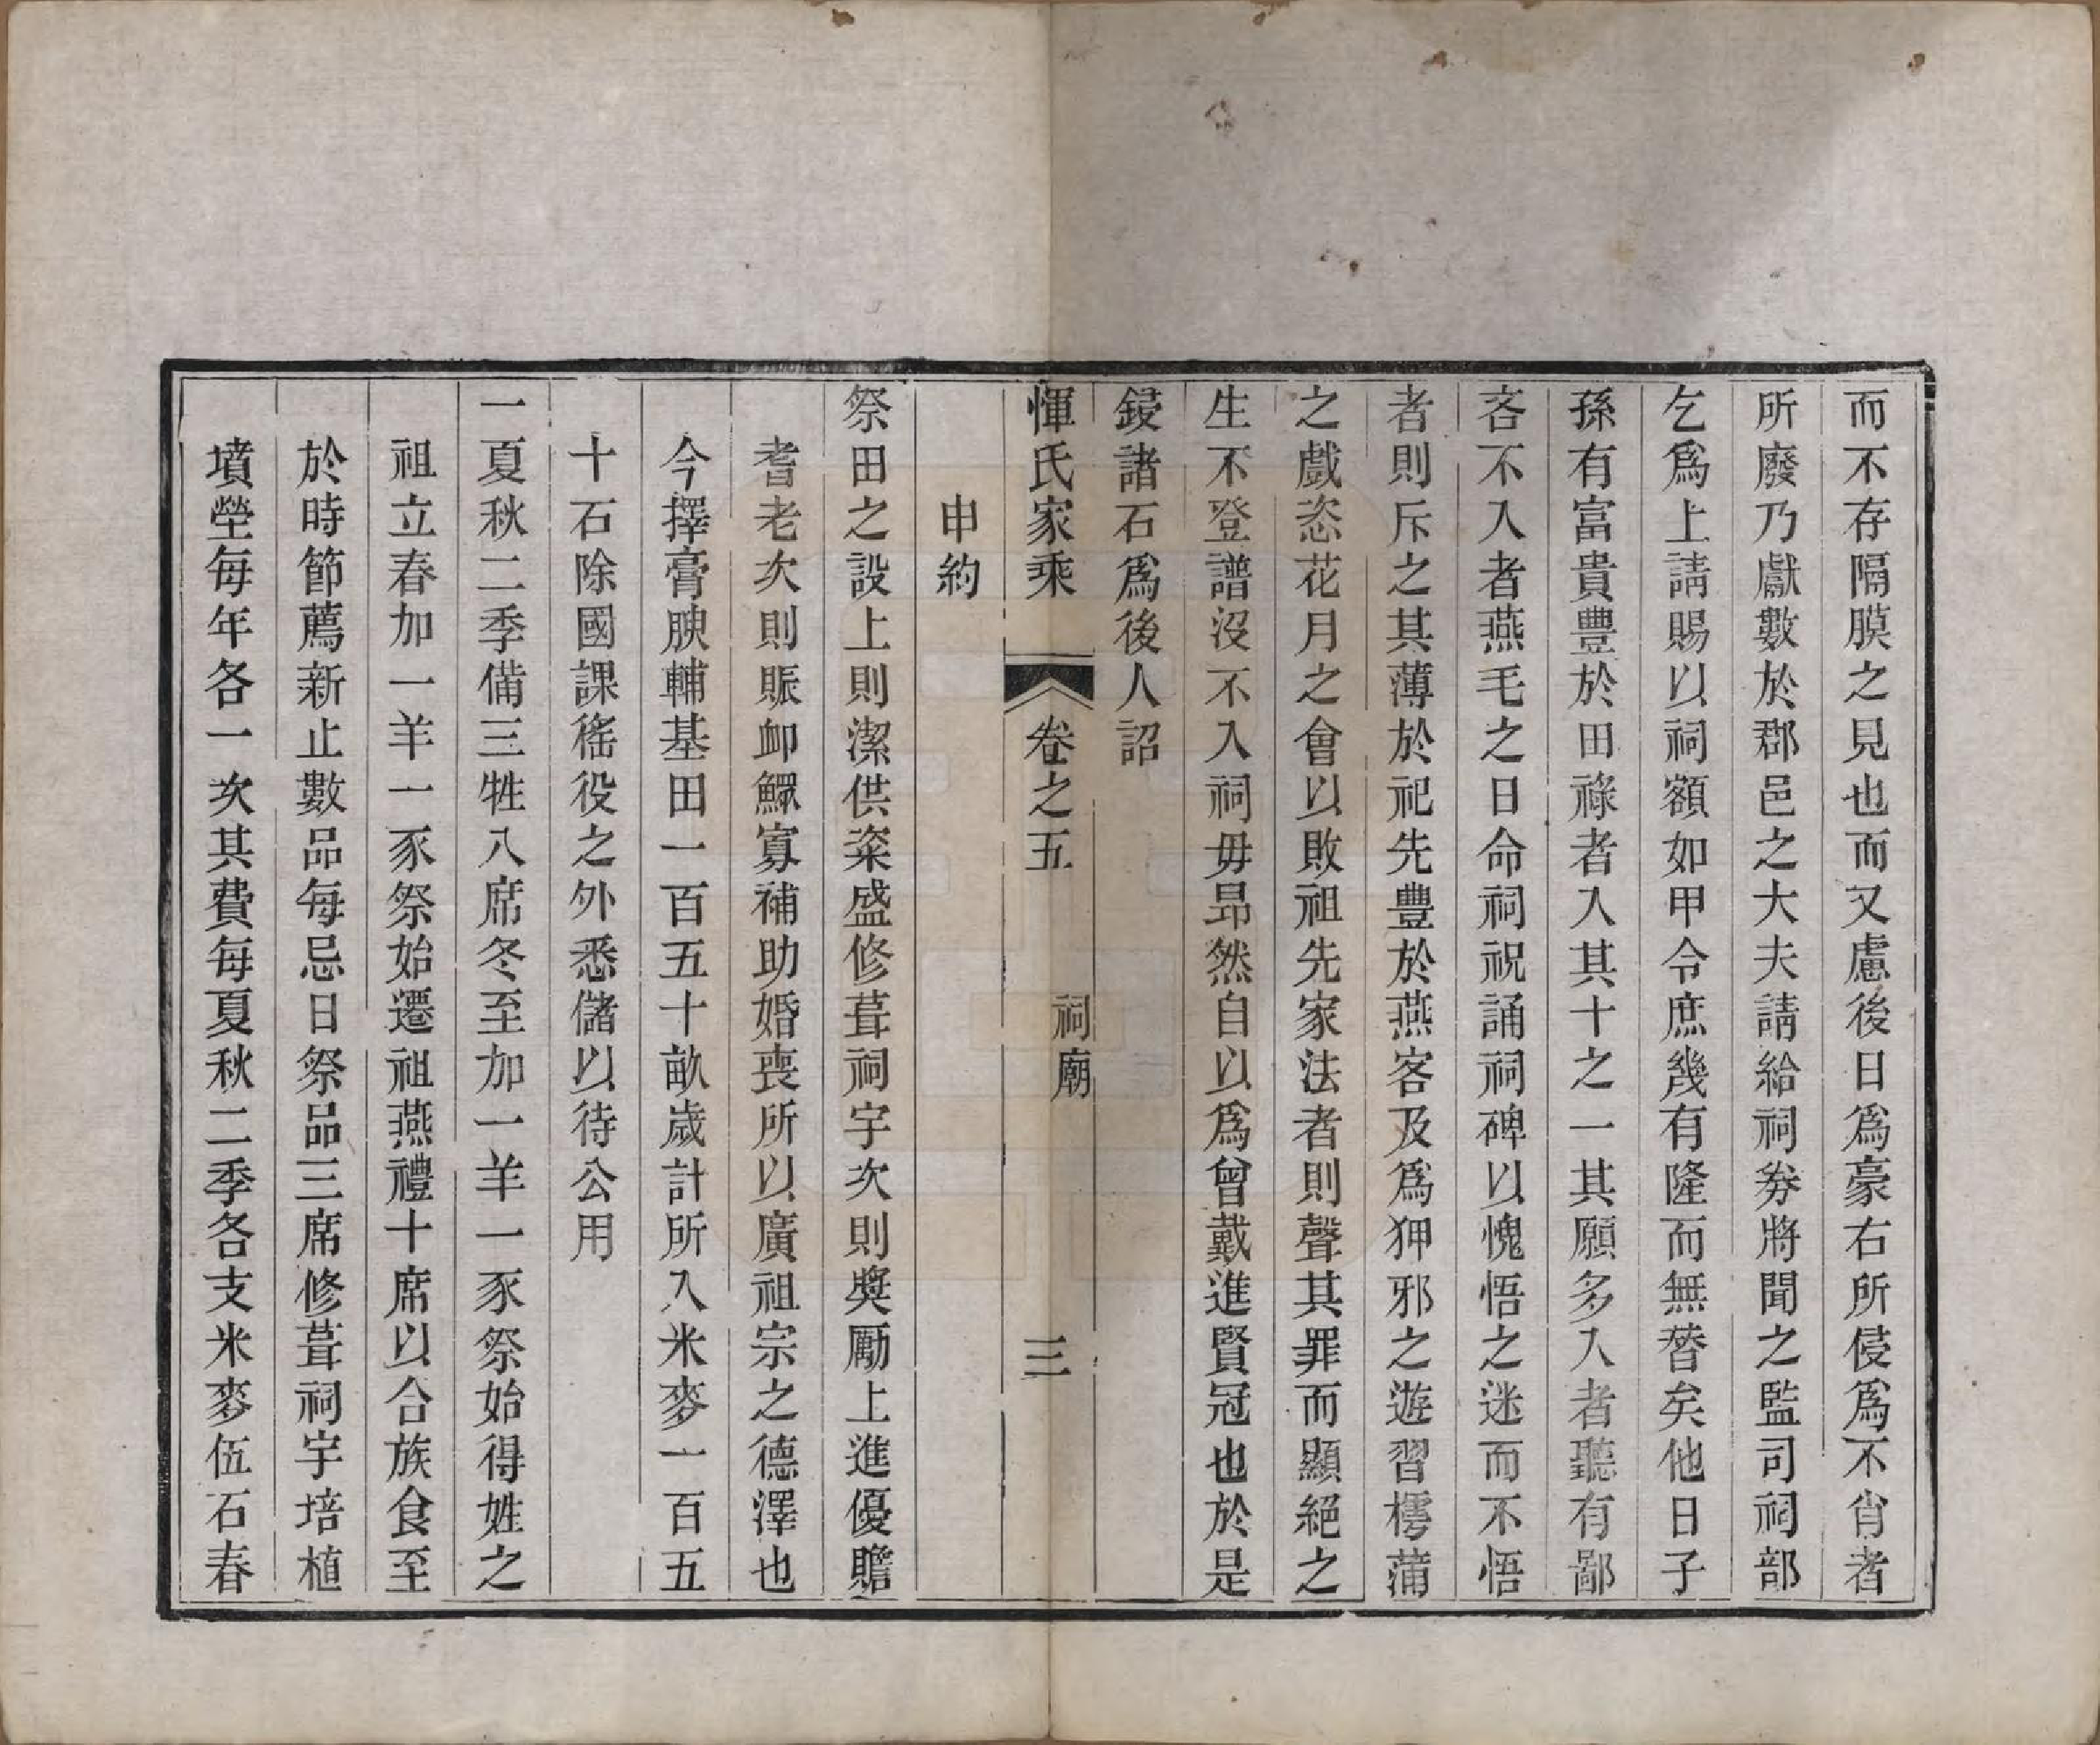 而不存隔膜之見也而又慮後日爲豪右所侵爲不肖者
所廢乃獻數於郡邑之大夫請給祠劵將聞之監司祠部
乞爲上請賜以祠額如甲令庶幾有隆而無替矣他日子
孫有富貴豐於田祿者入其十之一其願多入者聽有鄙
吝不入者燕毛之日命祠祝誦祠碑以愧悟之迷而不悟
者則斥之其薄於祀先豐於燕客及爲狎邪之遊習樗蒲
之戲恣花月之會以敗祖先家法者則聲其罪而顯絕之
生不登譜沒不入祠毋昂然自以爲曾戴進賢冠也於是
鋟諸石爲後人詔
惲氏家乘 卷之五 祠廟 三
申約
祭田之設上則潔供粢盛修葺祠宇次則奬勵上進優贍
耆老次則賑卹鰥寡補助婚喪所以廣祖宗之德澤也
今擇膏腴輔基田一百五十畝歲計所入米麥一百五
十石除國課徭役之外悉儲以待公用
一夏秋二季備三牲八席冬至加一羊一豕祭始得姓之
祖立春加一羊一豕祭始遷祖燕禮十席以合族食至
於時節薦新止數品每忌日祭品三席修葺祠宇培植
墳塋每年各一次其費每夏秋二季各支米麥伍石春